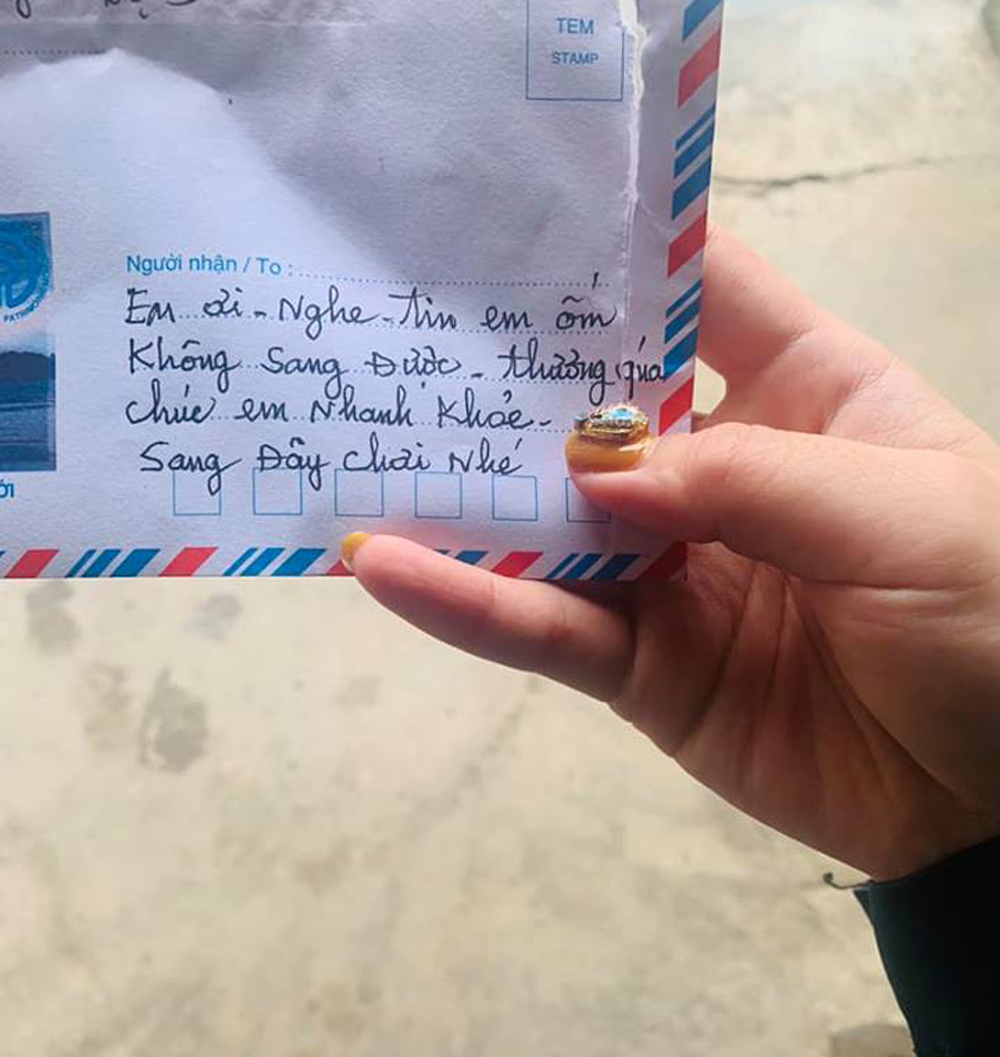 TEM
STAMP
PATRIMO
Người nhận / To :
Em ơi - Nghe - tin em ốm
Không Sang Được - thương qúa
chúc em Nhanh Khỏe -
Sang Đây chơi Nhé
ỚI